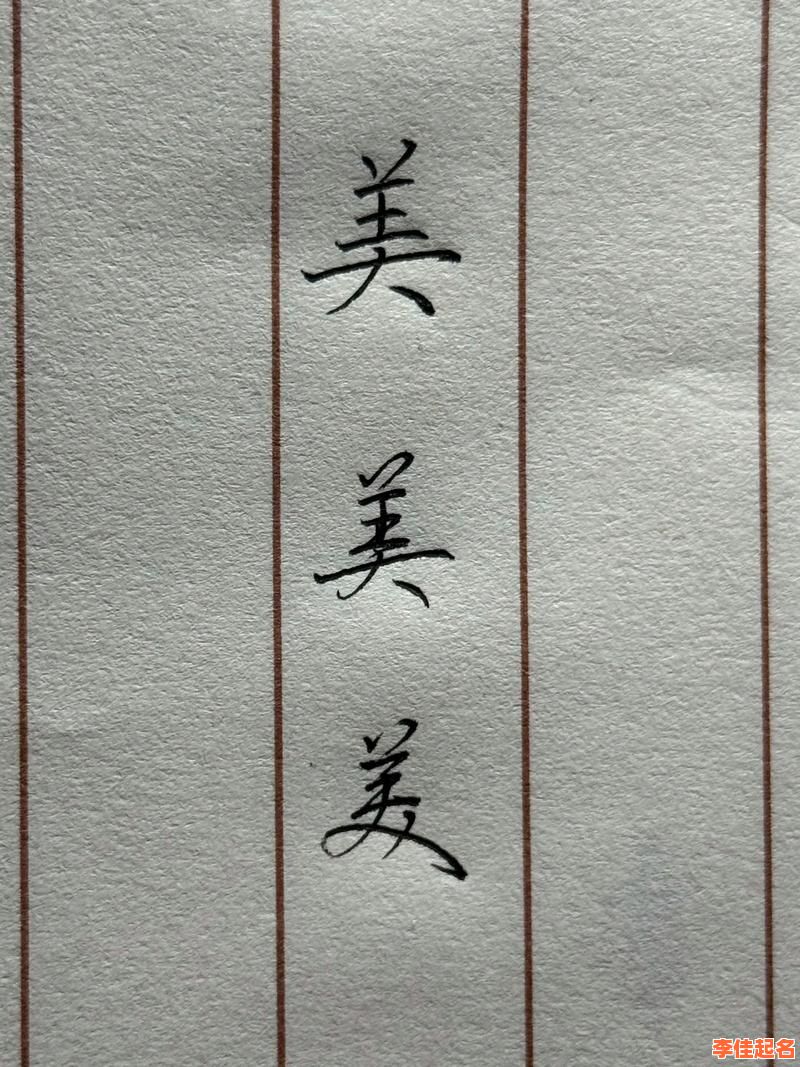 美
美
美
李佳起名